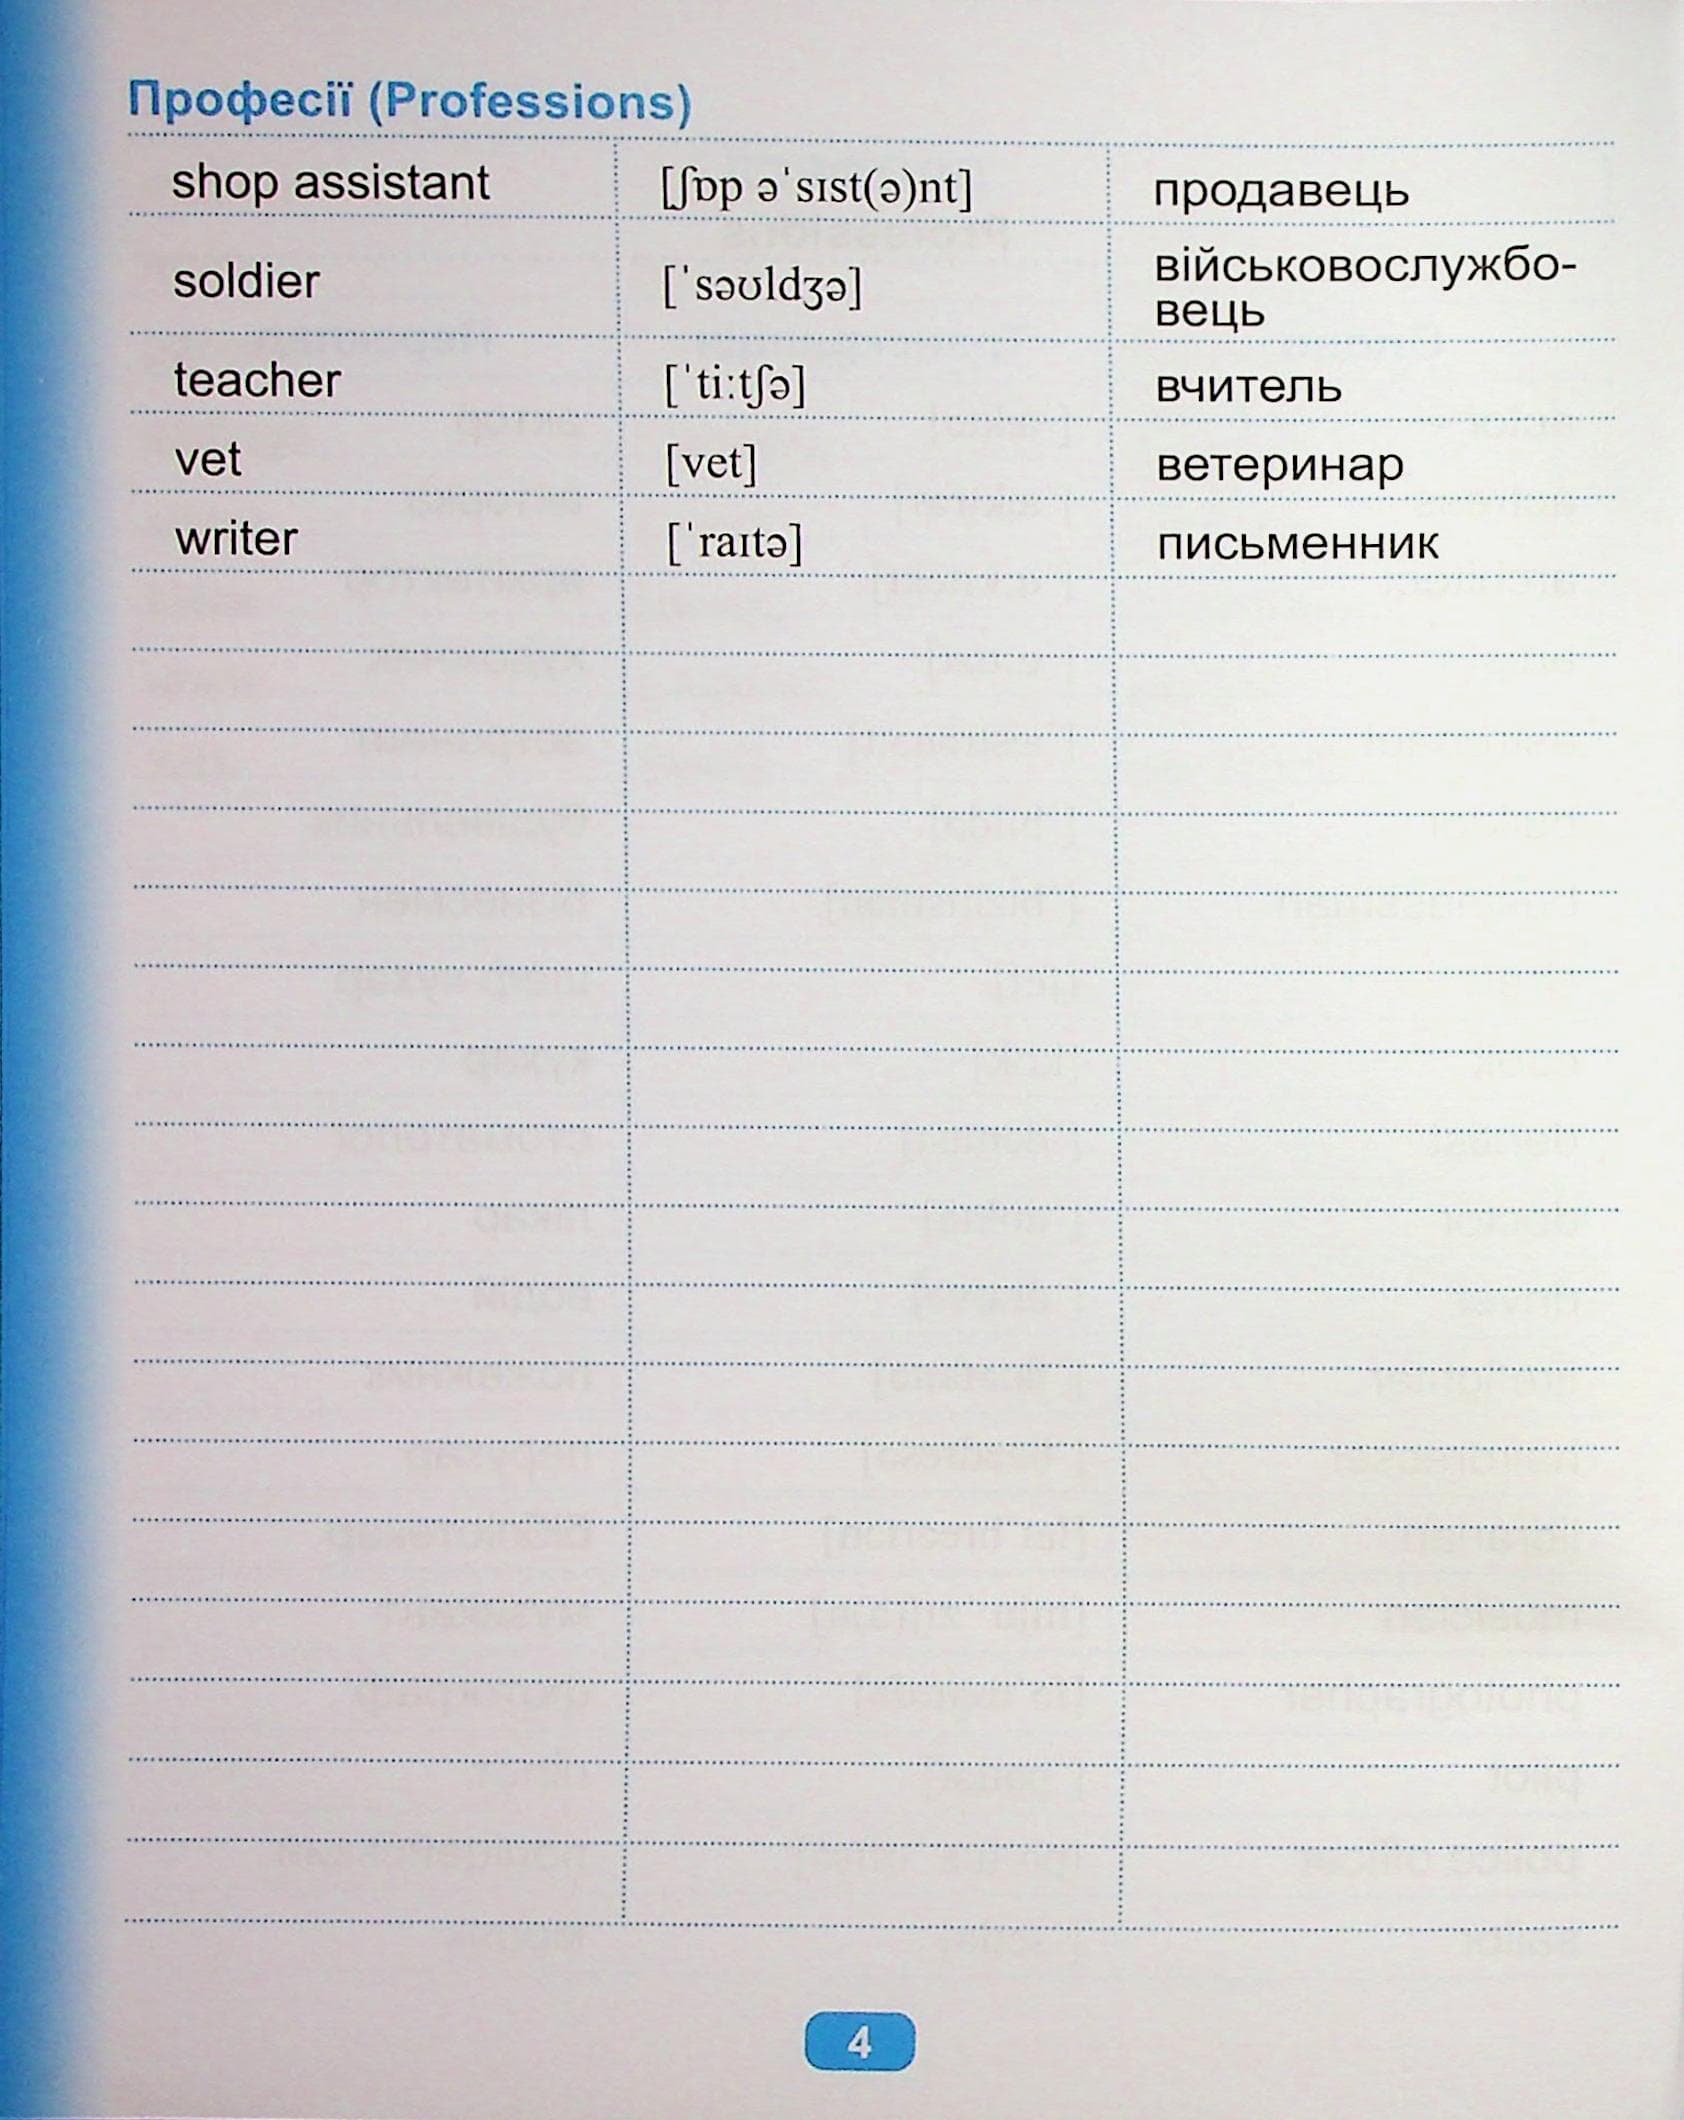 Професії (Professions)
shop assistant [ʃɒp əˈsɪst(ə)nt] продавець
soldier [ˈsəʊldʒə] військовослужбо-
вець
teacher [ˈti:tʃə] вчитель
vet [vet] ветеринар
writer [ˈraɪtə] письменник
4